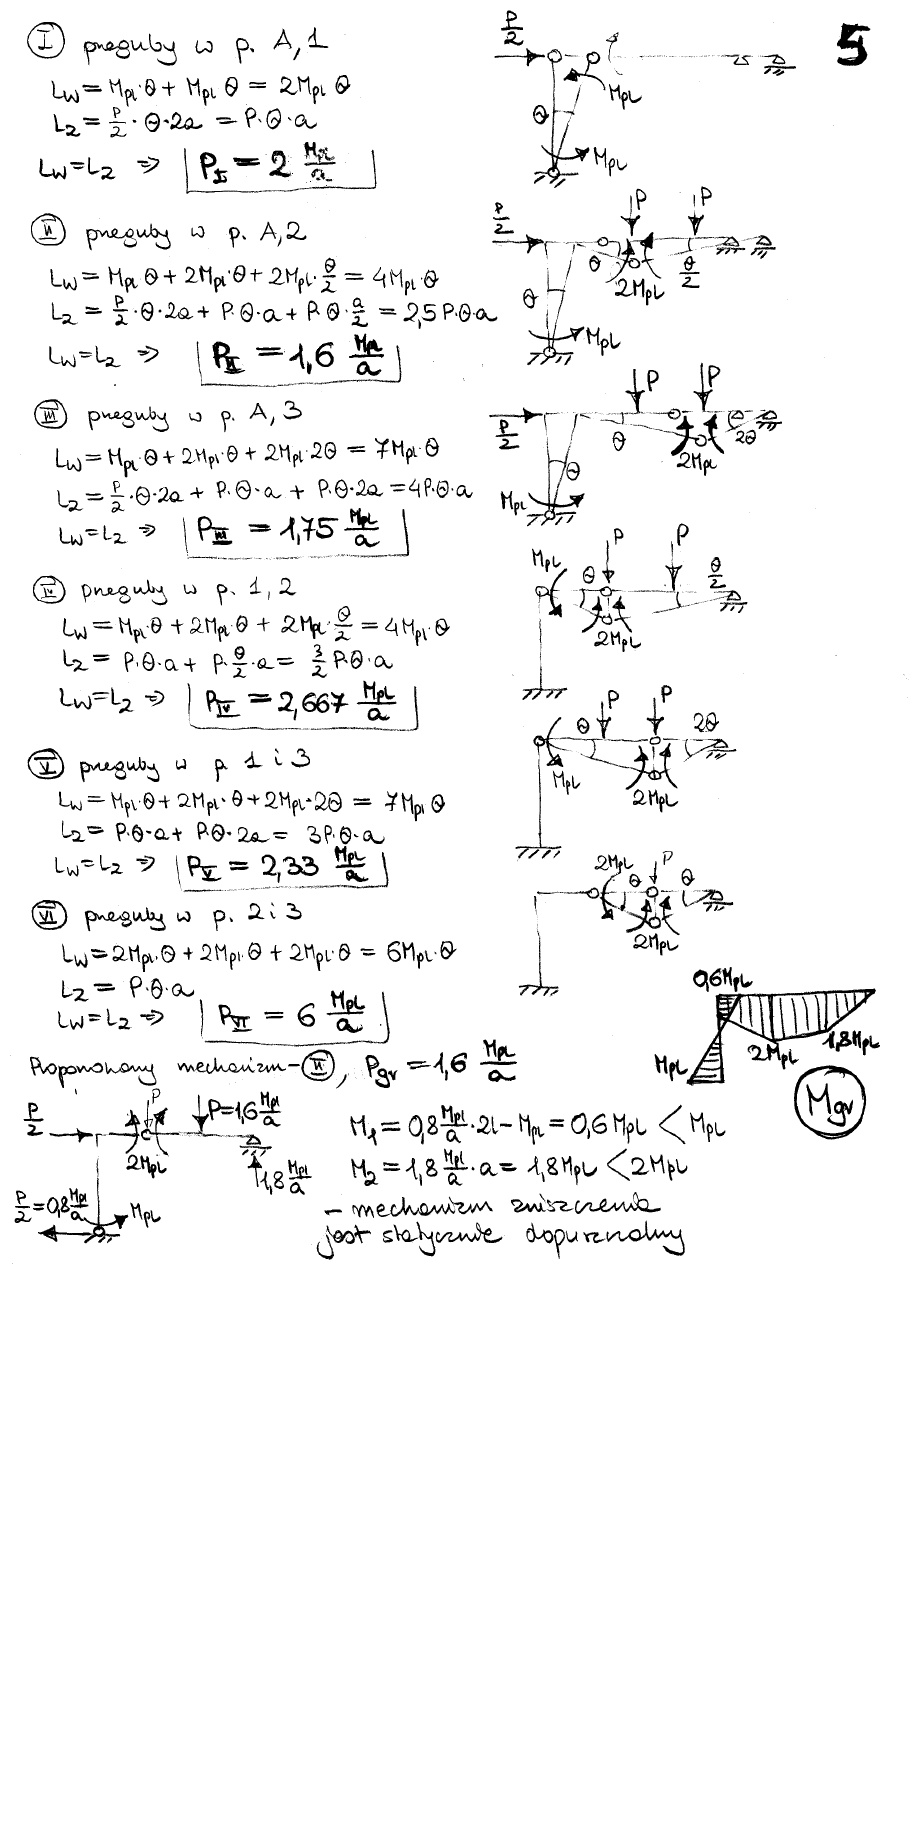 5
Ⓘ przeguby w p. A,1
Lw = Mpl·θ + Mpl θ = 2Mpl θ
Lz = P/2 · θ·2a = P·θ·a
Lw = Lz ⇒ P_I = 2 Mpl/a
P/2
θ
Mpl
Mpl
II przeguby w p. A,2
Lw = Mpl θ + 2Mpl·θ + 2Mpl·θ/2 = 4Mpl·θ
Lz = P/2·θ·2a + P·θ·a + P·θ·a/2 = 2,5 P·θ·a
Lw = Lz ⇒ P_II = 1,6 Mpl/a
P/2
P P
θ θ θ/2
2Mpl
Mpl
III przeguby w p. A,3
Lw = Mpl·θ + 2Mpl·θ + 2Mpl·2θ = 7Mpl·θ
Lz = P/2·θ·2a + P·θ·a + P·θ·2a = 4P·θ·a
Lw = Lz ⇒ P_III = 1,75 Mpl/a
P P
P/2
θ 2θ
2Mpl
θ
Mpl
IV przeguby w p. 1,2
Lw = Mpl·θ + 2Mpl·θ + 2Mpl·θ/2 = 4Mpl·θ
Lz = P·θ·a + P·θ/2·a = 3/2 P·θ·a
Lw = Lz ⇒ P_IV = 2,667 Mpl/a
P P
Mpl θ θ/2
2Mpl
V przeguby w p 1 i 3
Lw = Mpl·θ + 2Mpl·θ + 2Mpl·2θ = 7Mpl θ
Lz = P·θ·a + P·θ·2a = 3P·θ·a
Lw = Lz ⇒ P_V = 2,33 Mpl/a
P P
θ 2θ
Mpl
2Mpl
VI przeguby w p. 2 i 3
Lw = 2Mpl·θ + 2Mpl·θ + 2Mpl·θ = 6Mpl·θ
Lz = P·θ·a
Lw = Lz ⇒ P_VI = 6 Mpl/a
2Mpl P
θ θ
2Mpl
0,6Mpl
1,8Mpl
2Mpl
Mpl
Mgr
Proponowany mechanizm - II, Pgr = 1,6 Mpl/a
P/2
P
P=1,6 Mpl/a
2Mpl
1,8 Mpl/a
P/2 = 0,8 Mpl/a
Mpl
M1 = 0,8 Mpl/a · 2l - Mpl = 0,6 Mpl < Mpl
M2 = 1,8 Mpl/a · a = 1,8Mpl < 2Mpl
- mechanizm zniszczenia
jest statycznie dopuszczalny